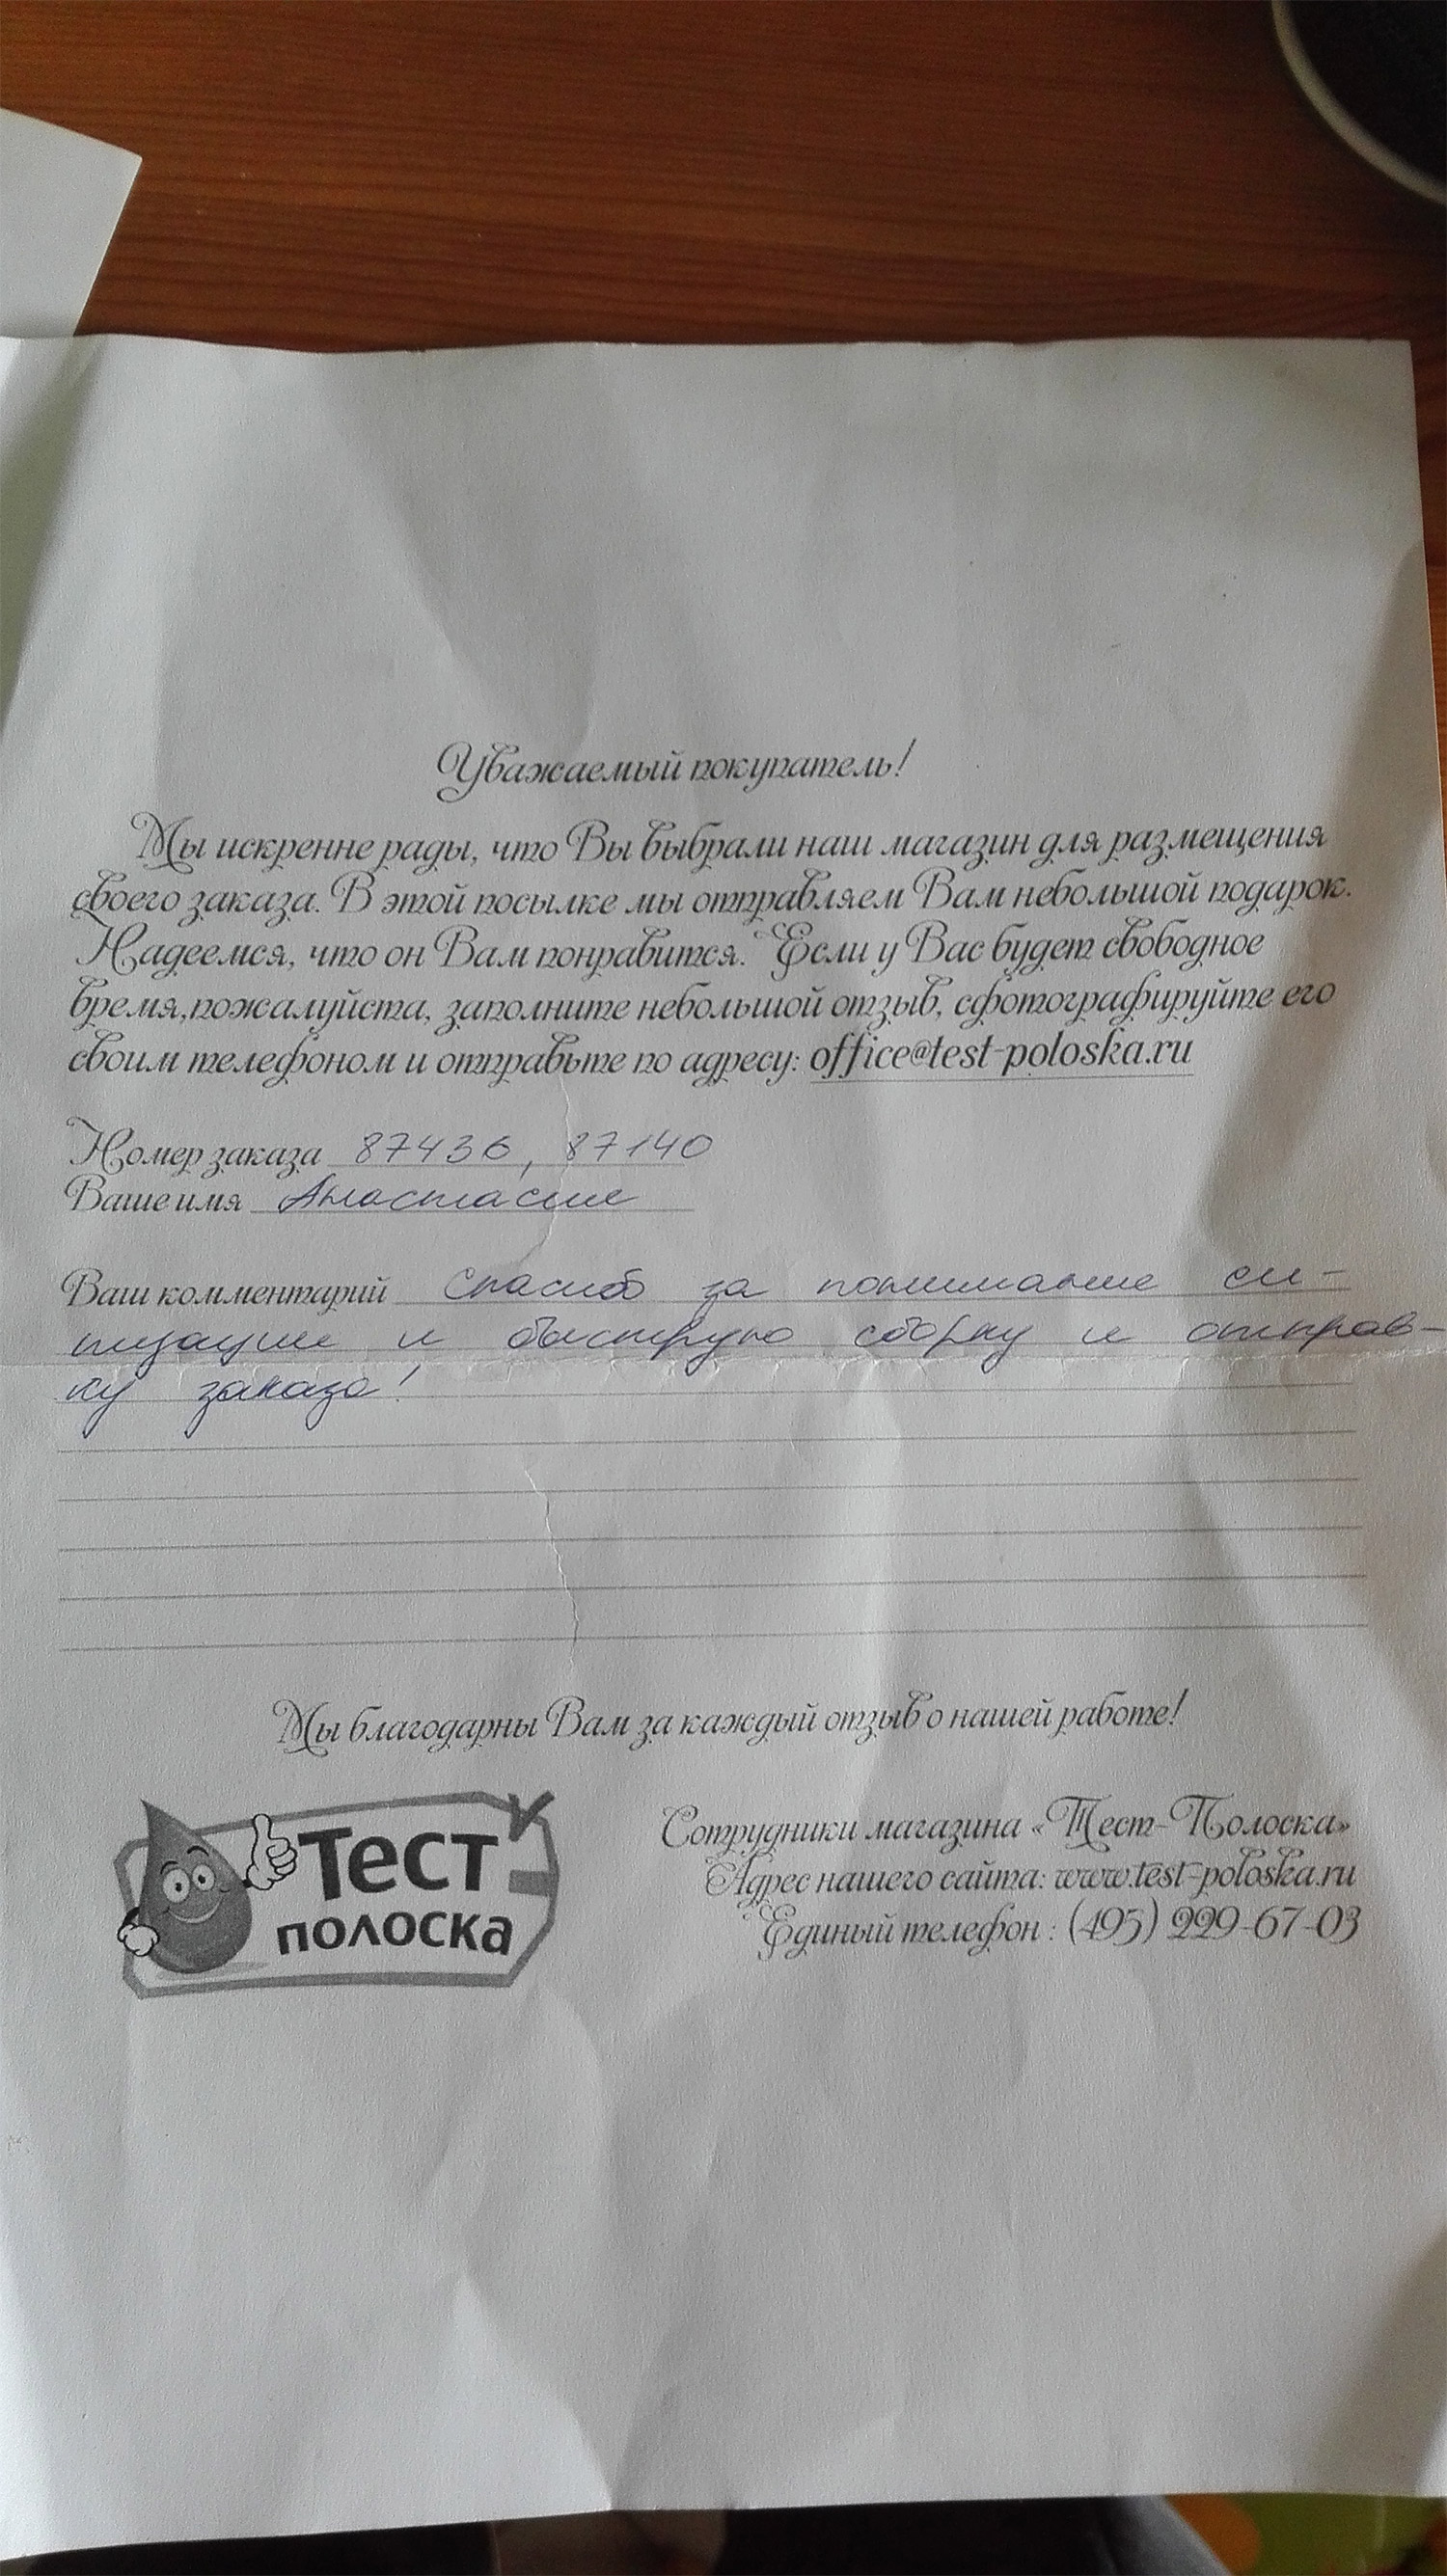 Уважаемый покупатель!
Мы искренне рады, что Вы выбрали наш магазин для размещения
своего заказа. В этой посылке мы отправляем Вам небольшой подарок.
Надеемся, что он Вам понравится. Если у Вас будет свободное
время,пожалуйста, заполните небольшой отзыв, сфотографируйте его
своим телефоном и отправьте по адресу: office@test-poloska.ru
Номер заказа 87436, 87140
Ваше имя Анастасия
Ваш комментарий Спасибо за понимание си-
туации и быструю сборку и отправ-
ку заказа!
Мы благодарны Вам за каждый отзыв о нашей работе!
Тест
полоска
Сотрудники магазина «Тест-Полоска»
Адрес нашего сайта: www.test-poloska.ru
Единый телефон : (495) 229-67-03